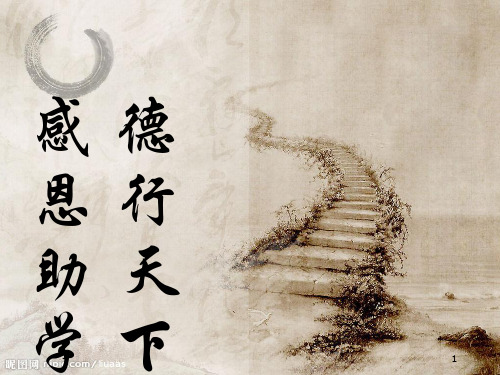 德行天下
感恩助学
昵图网 nipic.com/5uaas
1